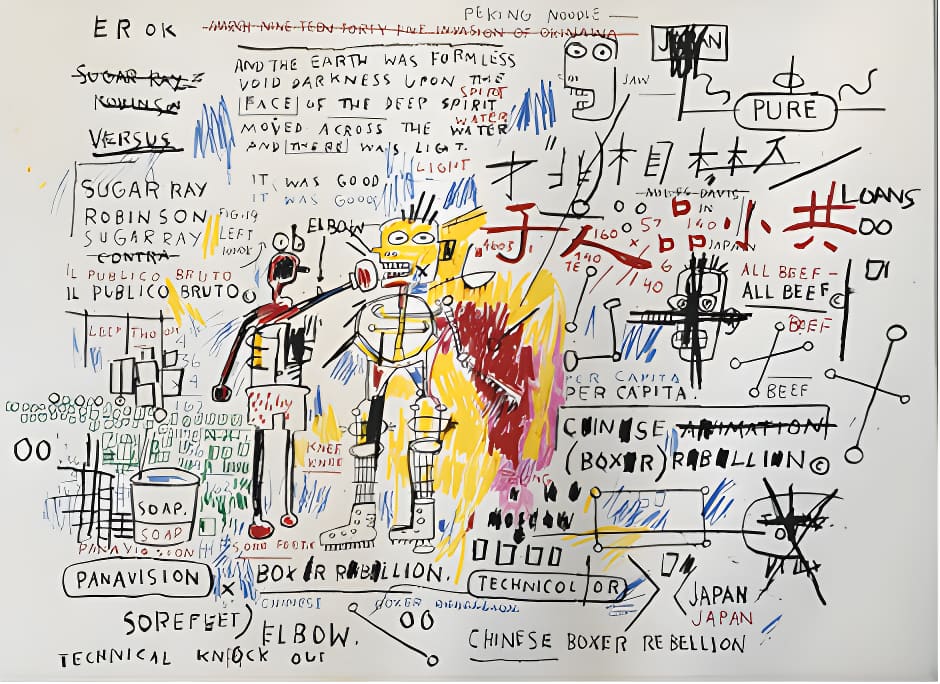 PEKING NOODLE
EROK
MARCH NINETEEN FORTY FIVE INVASION OF OKINAWA
JAPAN
SUGAR RAY
ROBINSON
VERSUS
AND THE EARTH WAS FORMLESS
VOID DARKNESS UPON THE
SPIRIT
FACE OF THE DEEP SPIRIT
WATER
MOVED ACROSS THE WATER
AND THERE WAS LIGHT.
LIGHT
JAW
PURE
IT WAS GOOD
IT WAS GOOD
SUGAR RAY
ROBINSON
SUGAR RAY
CONTRA
FIG.19
LEFT
ELBOW
IL PUBLICO BRUTO
IL PUBLICO BRUTO
MILES DAVIS
IN
JAPAN
才
木目
木木
子人品小共
LOANS
OO
4603
160
57
140
X
6
140
40
TE
ALL BEEF -
ALL BEEF ©
BEEF
BEEF
PER CAPITA
PER CAPITA.
36
X 4
KNEE
CHINESE ANIMATION
(BOXER) REBELLION ©
OO
SOAP.
SOAP
MOSCOW
PANAVISION
BOXER REBELLION.
TECHNICOLOR
CHINESE BOXER REBELLION
JAPAN
JAPAN
SOREFEET)
ELBOW.
OO
CHINESE BOXER REBELLION
TECHNICAL KNOCK OUT